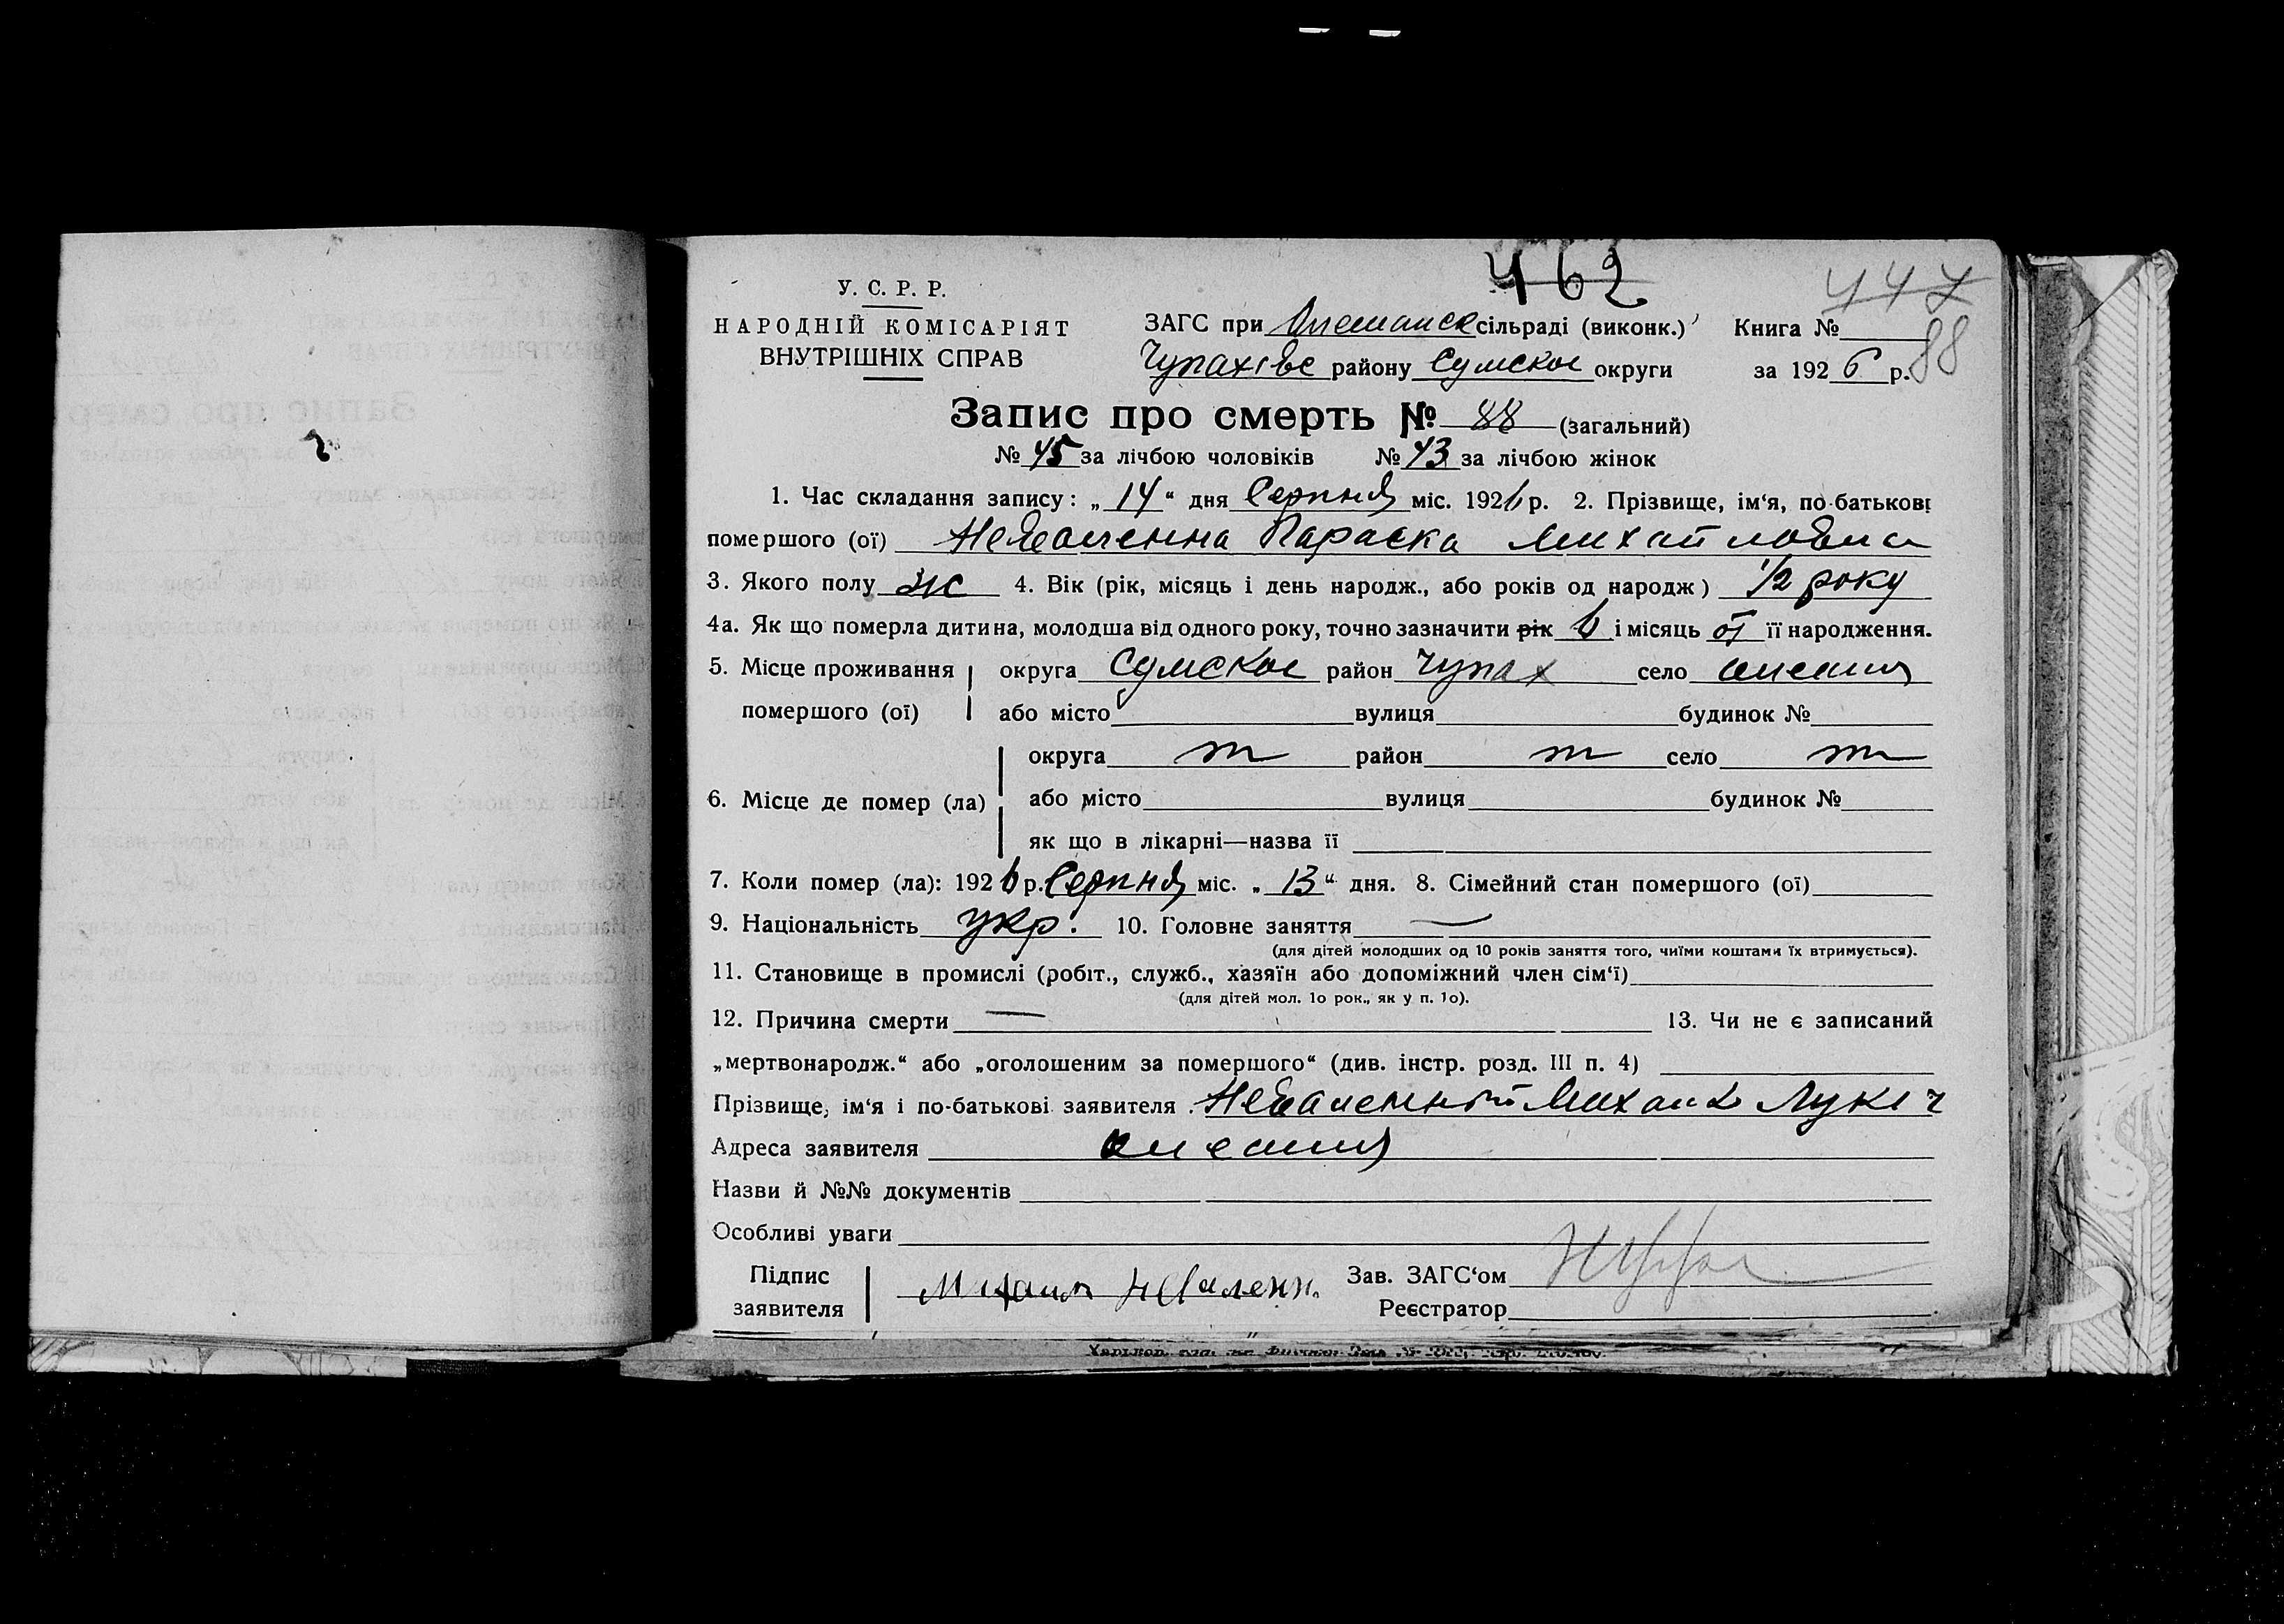 462
447
88
У. С. Р. Р.
НАРОДНІЙ КОМІСАРІЯТ
ВНУТРІШНІХ СПРАВ
ЗАГС при Олешанск сільраді (виконк.) Книга №
Чупахівс району Сумской округи за 1926 р.
Запис про смерть № 88 (загальний)
№ 45 за лічбою чоловіків № 43 за лічбою жінок
1. Час складання запису: „ 14 “ дня Серпня міс. 1926 р. 2. Прізвище, ім‘я, по-батькові
помершого (ої) Параска Михайловна
3. Якого полу ж 4. Вік (рік, місяць і день народж., або років од народж) 1/2 року
4а. Як що померла дитина, молодша від одного року, точно зазначити рік 6 і місяць от її народження.
5. Місце проживання округа Сумской район Чупах село Олешня
помершого (ої) або місто вулиця будинок №
округа т район т село т
6. Місце де помер (ла) або місто вулиця будинок №
як що в лікарні—назва її
7. Коли помер (ла): 1926 р. Серпня міс. „ 13 “ дня. 8. Сімейний стан помершого (ої)
9. Національність укр. 10. Головне заняття —
(для дітей молодших од 10 років заняття того, чиїми коштами їх втримується).
11. Становище в промислі (робіт., служб., хазяїн або допоміжний член сім‘ї)
(для дітей мол. 1о рок., як у п. 1о).
12. Причина смерти — 13. Чи не є записаний
„мертвонародж.“ або „оголошеним за помершого“ (див. інстр. розд. III п. 4)
Прізвище, ім‘я і по-батькові заявителя Михаил Лукич
Адреса заявителя Олешня
Назви й №№ документів
Особливі уваги
Підпис
заявителя Михаил Зав. ЗАГС‘ом
Реєстратор